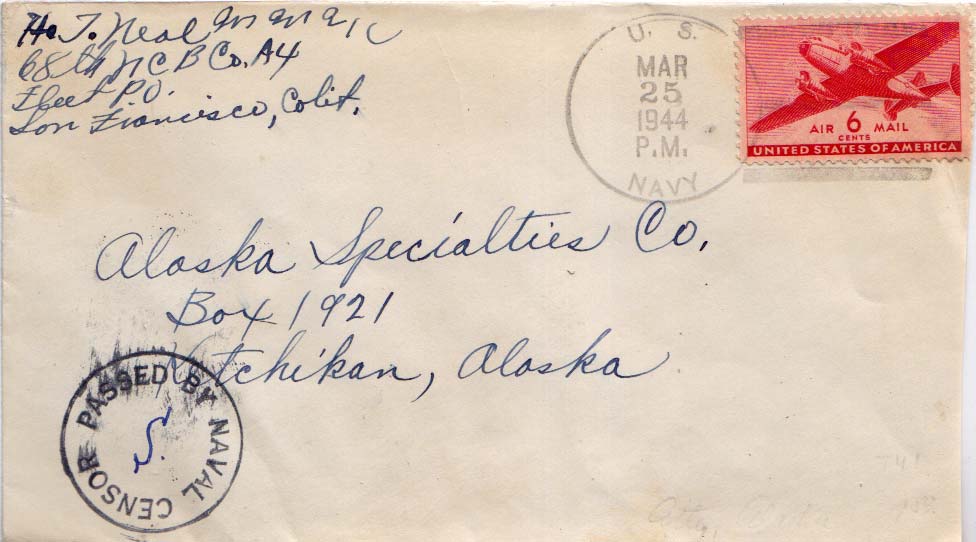 T. Neal
68th NCB Co. A4
Fleet P.O.
San Francisco, Calif.
U. S.
MAR
25
1944
P.M.
NAVY
AIR 6 MAIL
CENTS
UNITED STATES OF AMERICA
Alaska Specialties Co.
Box 1921
Ketchikan, Alaska
PASSED BY NAVAL CENSOR
S.